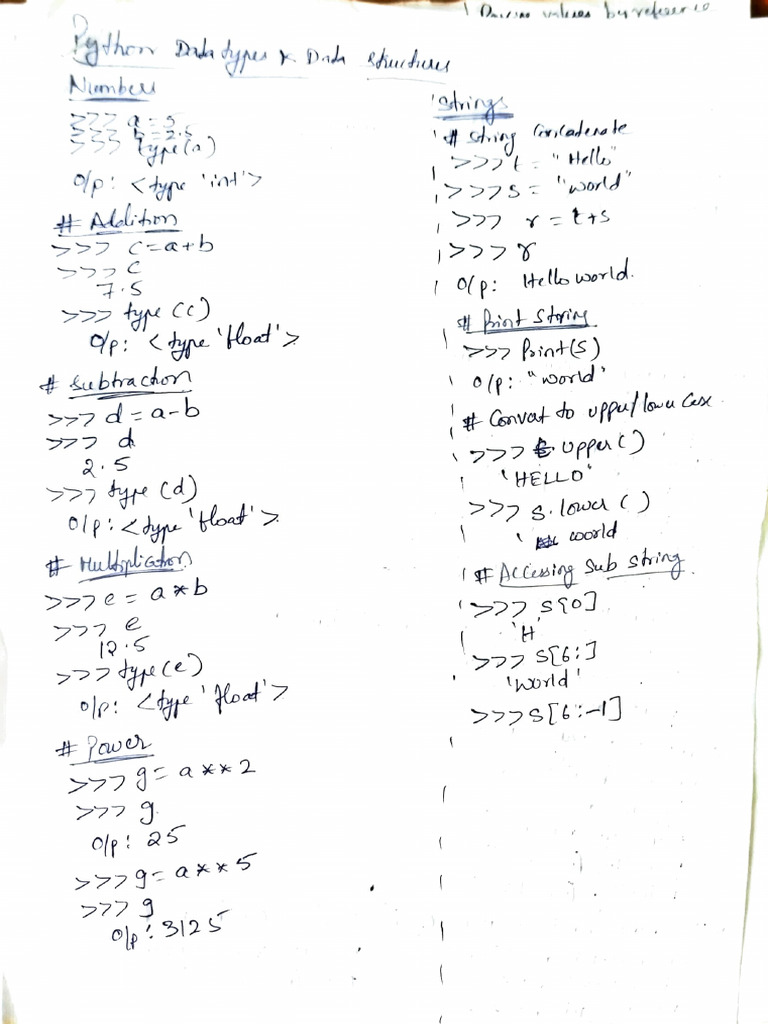 Passing values by reference
Python Data types & Data structures
Numbers
>>> a = 5
>>> b = 2.5
>>> type(a)
O/p: <type 'int'>
# Addition
>>> c=a+b
>>> c
7.5
>>> type (c)
O/p: <type 'float'>
# Subtraction
>>> d = a-b
>>> d
2.5
>>> type (d)
O/p: <type 'float'>
# Multiplication
>>> e = a*b
>>> e
12.5
>>> type(e)
O/p: <type 'float'>
# Power
>>> g = a**2
>>> g
O/p: 25
>>> g = a**5
>>> g
O/p: 3125
Strings
# String Concatenate
>>> t = "Hello"
>>> s = "world"
>>> r = t+s
>>> r
O/p: Hello world.
# Print String
>>> Print(s)
O/p: "world"
# Convat to upper/lower case
>>> t.upper()
'HELLO"
>>> s.lower ()
' world
# Accessing Sub string
>>> s[0]
'H'
>>> s[6:]
'world'
>>> s[6:-1]